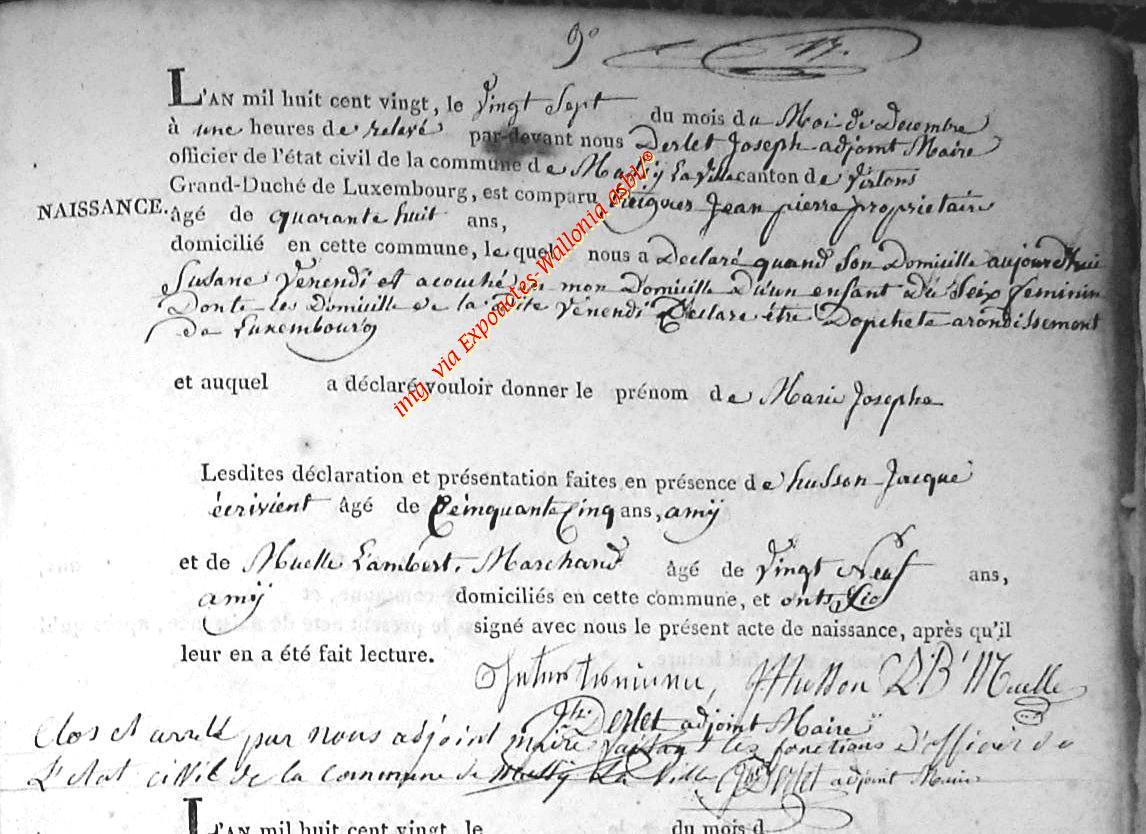 9°
L'AN mil huit cent vingt, le vingt Sept du mois du Moi de Decembre
à une heures de relevé par-devant nous Derlet Joseph adjoint Maire
officier de l'état civil de la commune de La Ville canton de Virtons
Grand-Duché de Luxembourg, est comparu Jean pierre proprietaire
NAISSANCE.
âgé de quarante huit ans,
domicilié en cette commune, le quel nous a Declaré quand Son Domicille aujourdhui
Susane Venendi et acouché mon Domicille D'un enfant Du Seix feminin
Donte les Domicille de la Dite Venendi Declare être arondissement
De Luxembourg
et auquel a déclaré vouloir donner le prénom de Marie Josephe
Lesdites déclaration et présentation faites en présence de husson Jacque
écrivient âgé de Ceinquante Cinq ans, amÿ
et de Muelle Lambert, Marchand âgé de vingt Neuf ans,
amÿ domiciliés en cette commune, et onts
signé avec nous le présent acte de naissance, après qu'il
leur en a été fait lecture.
JHusson Muelle
Derlet adjoint Maire
Clos et arrêté par nous adjoint maire faisant les fonctions D'officier de
L'etat civil de la commune de La Ville Derlet adjoint Maire
L'AN mil huit cent vingt, le du mois d
img. via Exponotes-Wallonia asbl/®